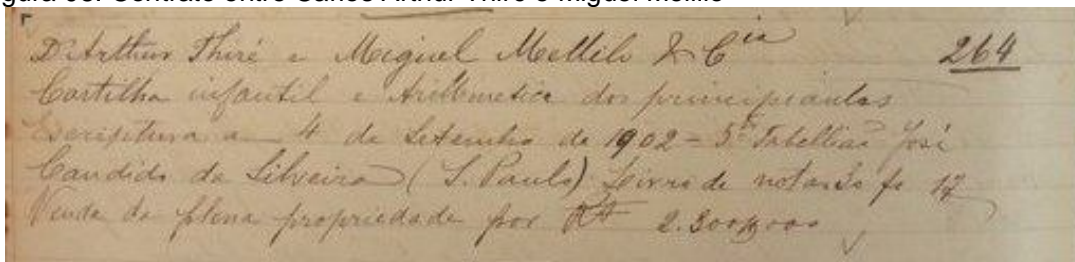 Figura 08: Contrato entre Carlos Arthur Thiré e Miguel Melillo
D. Arthur Thiré e Miguel Mellilo & Cia 264
Cartilha infantil e Arithmetica dos principiantes
Escriptura a 4 de Setembro de 1902 - 5º Tabellião José
Candido da Silveira (S. Paulo) Livro de notas fs 17
Venda da plena propriedade por R$ 2.300$000